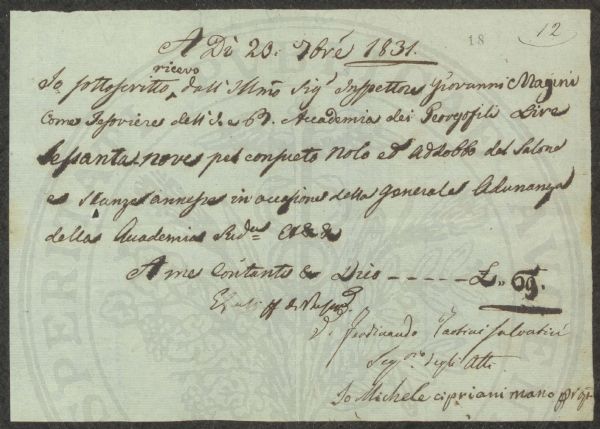 18
12
A Dì 20. 7bre 1831.
Io sottoscritto ricevo dall' Illmo Sigr Inspettore Giovanni Magini
Come Tesoriere dell' I. e R. Accademia dei Georgofili Lire
Sessantanove per consueto Nolo ed addobbo del Salone
e Stanze annesse in occasione della Generale Adunanza
della Accademia Suda
A me Contante Dico - - - - - £.. 69.
Ferdinando Tartini Salvatici
Segrio degli Atti
Io Michele cipriani mano ppria